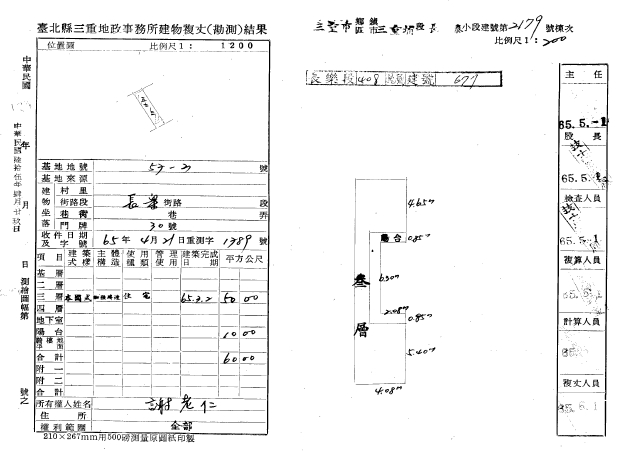 臺北縣三重地政事務所建物複丈(勘測)結果
位置圖 比例尺1: 1200
中華民國 年 月 日 測繪圖幅第 號之
中華民國陸拾伍年肆月廿玖日
基地地號 57-21 號
基地來源
建物坐落
村里
街路段 長樂街路 段
巷衖 巷 弄
門牌 30號
收件日期及字號 65年4月21日重測字1389號
項目 建築式樣 主體構造 使用種類 管理使用 建築完成日期 平方公尺
基層
二層
三層 本國式 住宅 65.3.2 50 00
四層
地下室
陽台 10 00
騎樓地平面
合計 60 00
附一
附二
合計
所有權人姓名 謝老仁
住所
權利範圍 全部
210×267mm用500磅測量原圖紙印製
三重市 鄉鎮區市 三重埔段 長泰小段建號第2179號棟次
比例尺1: 200
長樂段408 建號 677
4.65m
陽台 0.85m
6.30m
叁層
2.08m
0.85m
5.40m
4.08m
主任
65.5.-1
股長
65.5.
檢查人員
65.5.1
複算人員
65.5.
計算人員
65.
複丈人員
65.5.1